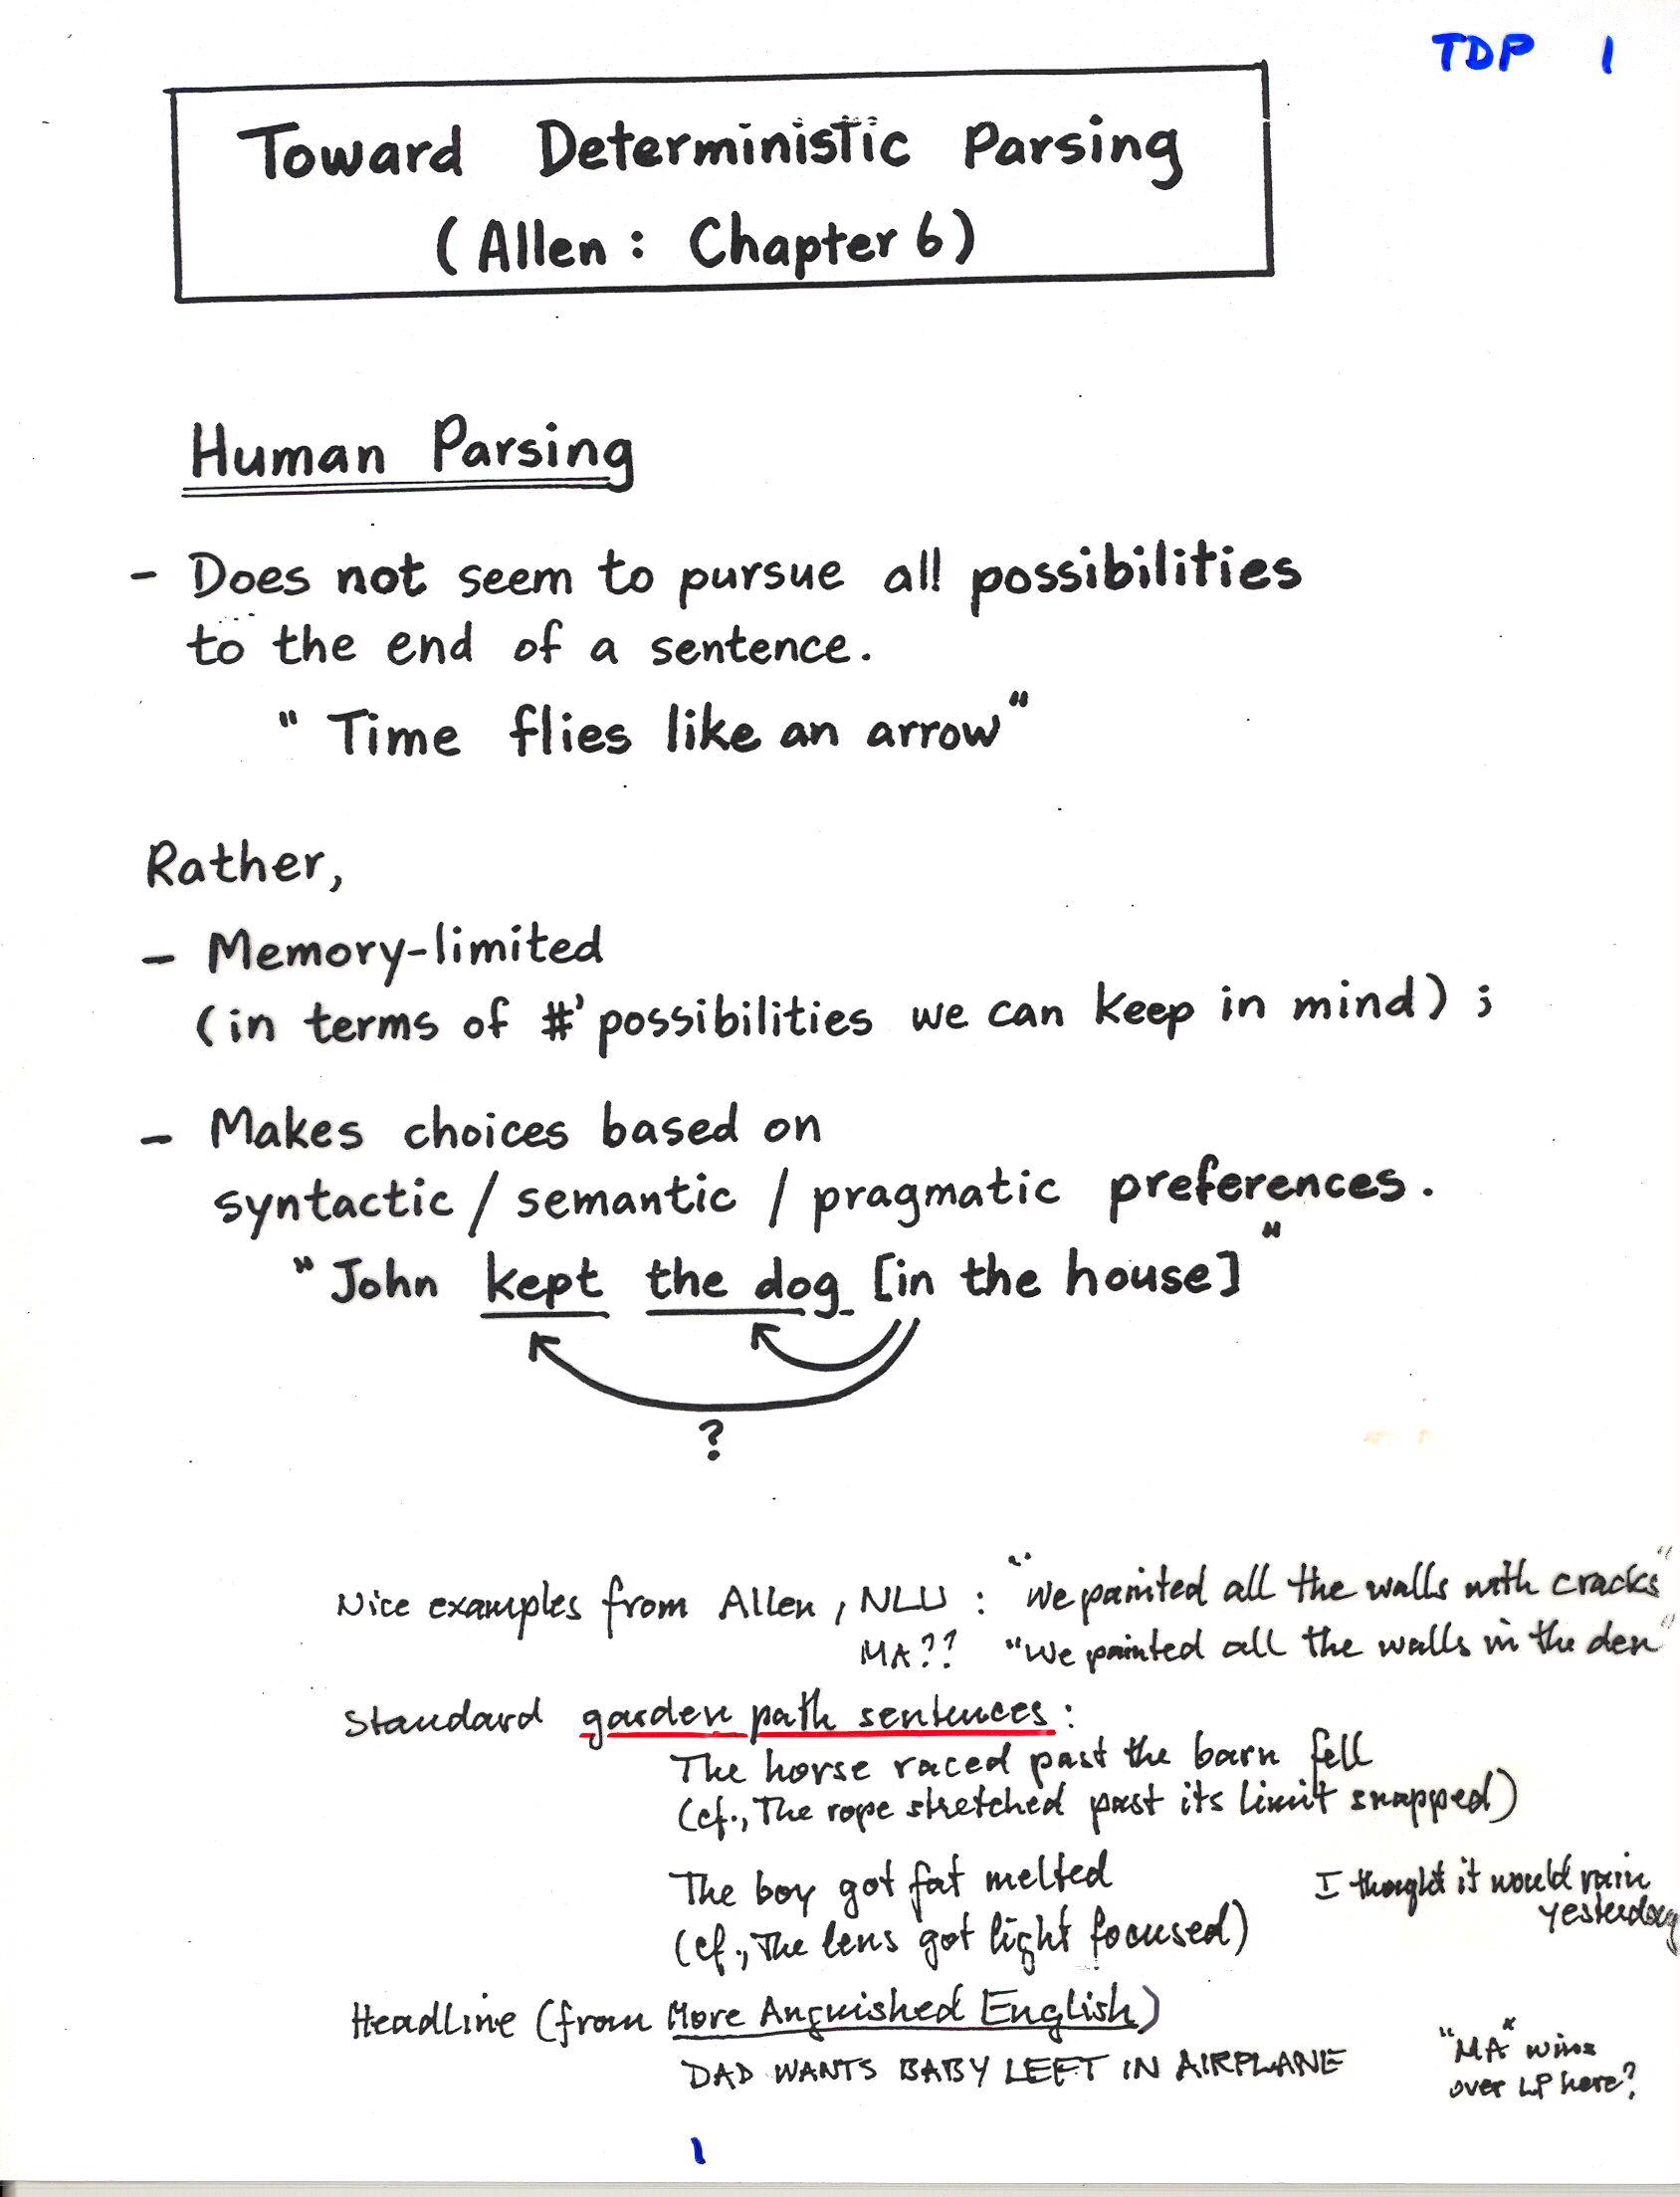 TDP 1
Toward Deterministic Parsing
(Allen: Chapter 6)
Human Parsing
- Does not seem to pursue all possibilities
to the end of a sentence.
"Time flies like an arrow"
Rather,
- Memory-limited
(in terms of #' possibilities we can keep in mind);
- Makes choices based on
syntactic / semantic / pragmatic preferences.
"John kept the dog [in the house]"
?
Nice examples from Allen, NLU: "We painted all the walls with cracks"
MA?? "We painted all the walls in the den"
Standard garden path sentences:
The horse raced past the barn fell
(cf., The rope stretched past its limit snapped)
The boy got fat melted
(cf., The lens got light focused)
I thought it would rain
yesterday
Headline (from More Anguished English)
DAD WANTS BABY LEFT IN AIRPLANE
"MA" wins
over LP here?
1